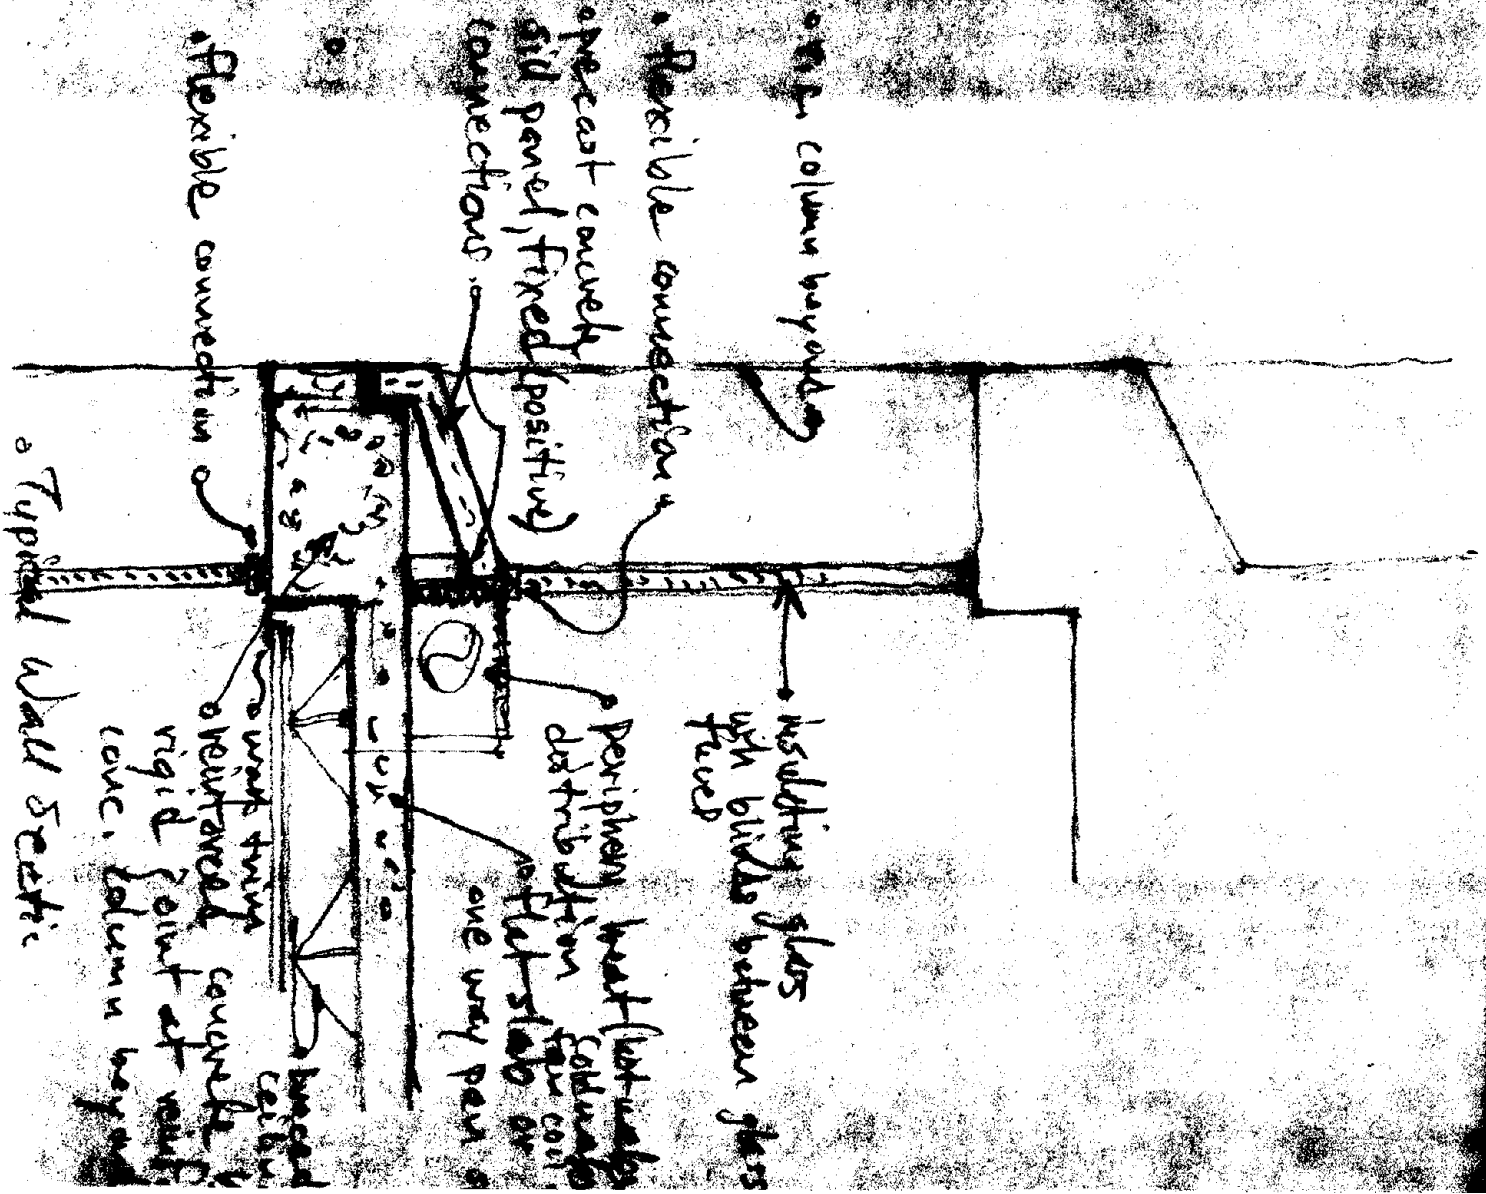 column beyond
• flexible connection
• precast concrete
sill panel, fixed (positive)
connections.
• flexible connection
insulating glass
with blinds between glass
periphery heat (hot water
distribution fan coil
flat slab or
one way pan
braced
ceilin
main
reinforced concrete
rigid joint at reinf
conc. column beyond
• Typical Wall Sectio